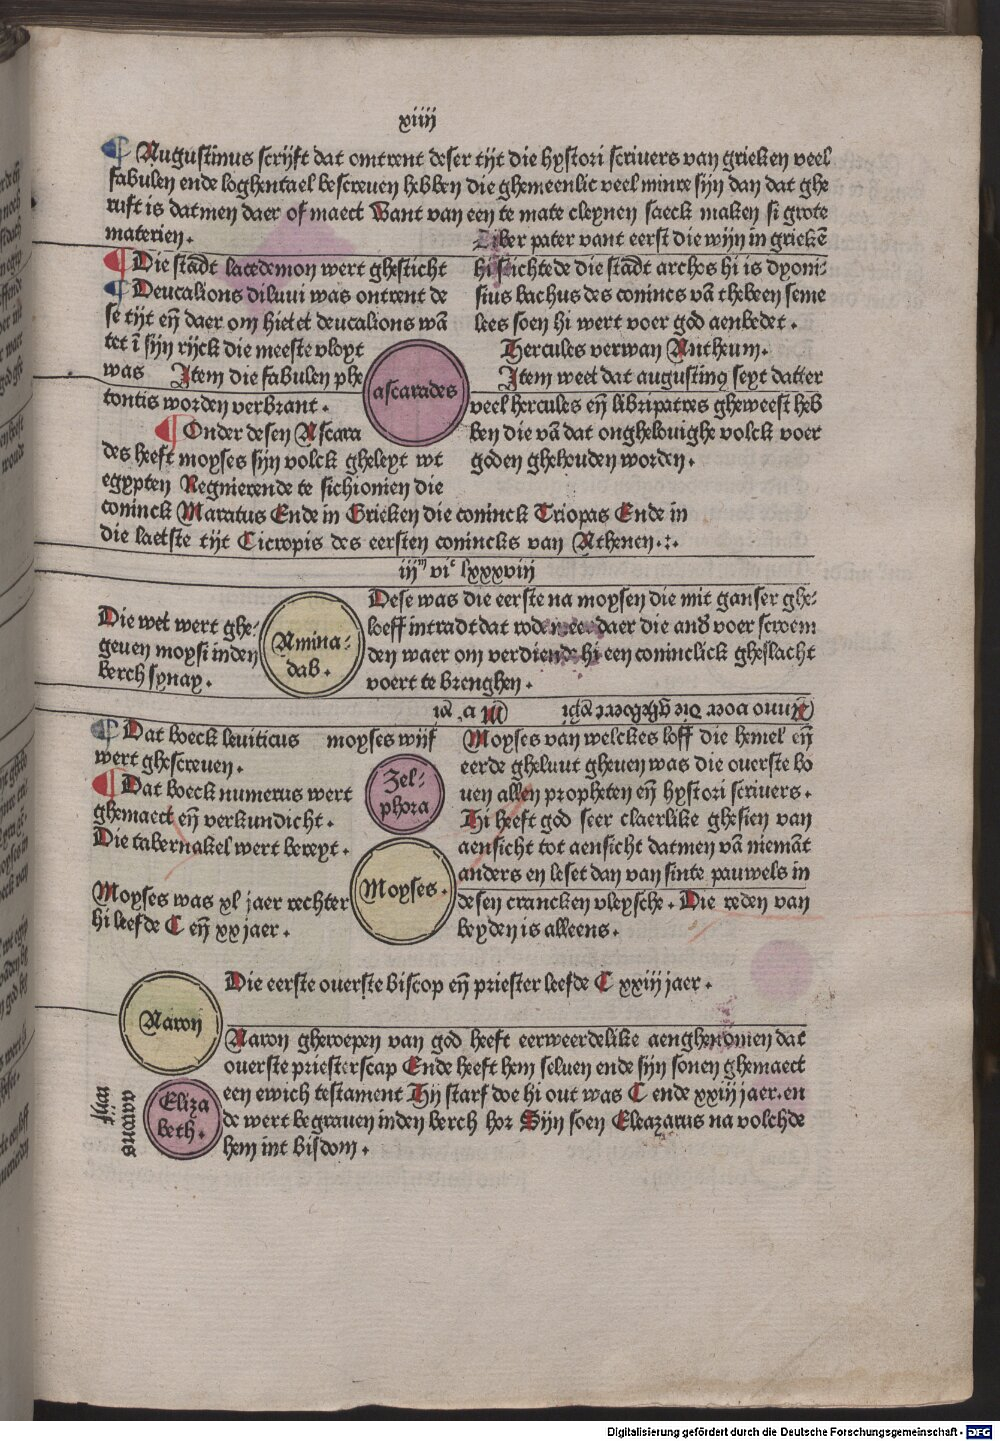 xiiij
Augustinus scrijft dat omtrent deser tijt die hystori scrivers van grieken veel
fabulen ende loghentael bescreven hebben die ghemeenlic veel minre sijn dan dat ghe
ruft is datmen daer of maect Want van een te mate cleynen saeck maken si grote
materien.
Die stadt lacedemon wert ghesticht
Deucalions diluvi was ontrent de
se tijt eñ daer om hietet deucalions wā
tet ī sijn rijck die meeste vloyt
was Item die fabulen phe
tontis worden verbrant.
Onder desen Ascara
des heeft moyses sijn volck gheleyt wt
egypten Regnierende te sichionien die
Liber pater vant eerst die wijn in griekē
hi stichtede die stadt archos hi is dyoni-
sius bachus des conincs vā thebeen seme
lees soen hi wert voer god aenbedet.
Hercules verwan Antheum.
ascarades
Item weet dat augustinꝯ seyt datter
veel hercules eñ libripatres gheweest heb
ben die vā dat onghelovighe volck voer
goden ghehouden worden.
coninck Maratus Ende in Grieken die coninck Triopas Ende in
die laetste tijt Cicropis des eersten conincks van Athenen.:.
iijᵐ viᶜ lxxxviij
Die wet wert ghe-
geven moysi inden
berch synay.
Amina-
dab.
Dese was die eerste na moysen die mit ganser ghe-
loeff intradt dat rode meer daer die and' voer scroem
den waer om verdiende hi een coninclick gheslacht
voert te brenghen.
(Anno voer die gheboert xp̄i
Dat boeck leviticus
wert ghescreven.
Dat boeck numerus wert
ghemaect eñ verkundicht.
Die tabernakel wert bereyt.
moyses wijf
Zel-
phora
Moyses van welckes loff die hemel eñ
eerde gheluut gheven was die overste bo
ven allen propheten eñ hystori scrivers.
Hi heeft god seer claerlike ghesien van
aensicht tot aensicht datmen vā niemāt
anders en leset dan van sinte pauwels in
desen crancken vleysche. Die reden van
beyden is alleens.
Moyses was xl jaer rechter
hi leefde C eñ xx jaer.
Moyses.
Die eerste overste biscop eñ priester leefde C xxiij jaer.
Aaron
Aaron gheroepen van god heeft eerweerdelike aenghenomen dat
overste priesterscap Ende heeft hem selven ende sijn sonen ghemaect
een ewich testament Hij starf doe hi out was C ende xxiij jaer. en
de wert begraven inden berch hor Sijn soen Eleazarus na volchde
hem int bisdom.
aarons
wijf
Eliza
beth.
Digitalisierung gefördert durch die Deutsche Forschungsgemeinschaft - DFG